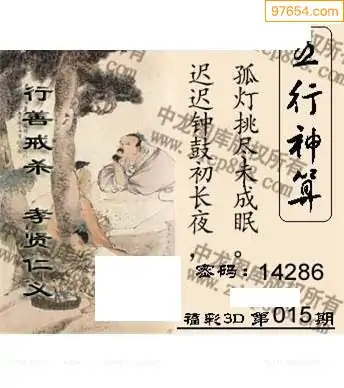 97654.com
五行神算
孤灯挑尽未成眠。
迟迟钟鼓初长夜，
行善戒杀 孝贤仁义
密码：14286
福彩3D 第015期
中龙图库版权所有